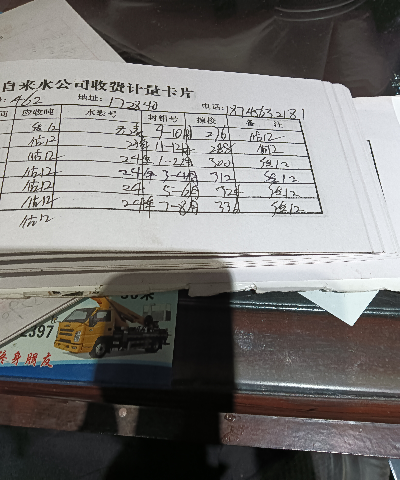 自来水公司收费计量卡片
462 地址: 172840 电话: 18745632181
应收吨 水表号 封铅号 换校 备注
估12 9-10月 276 估12
估12 23年 11-12月 288 估12
估12 24年 1-2月 300 估12
估12 24年 3-4月 312 估12
估12 24 5-6月 324 估12
估12 24年 7-8月 336 估12
估12
397
终身朋友